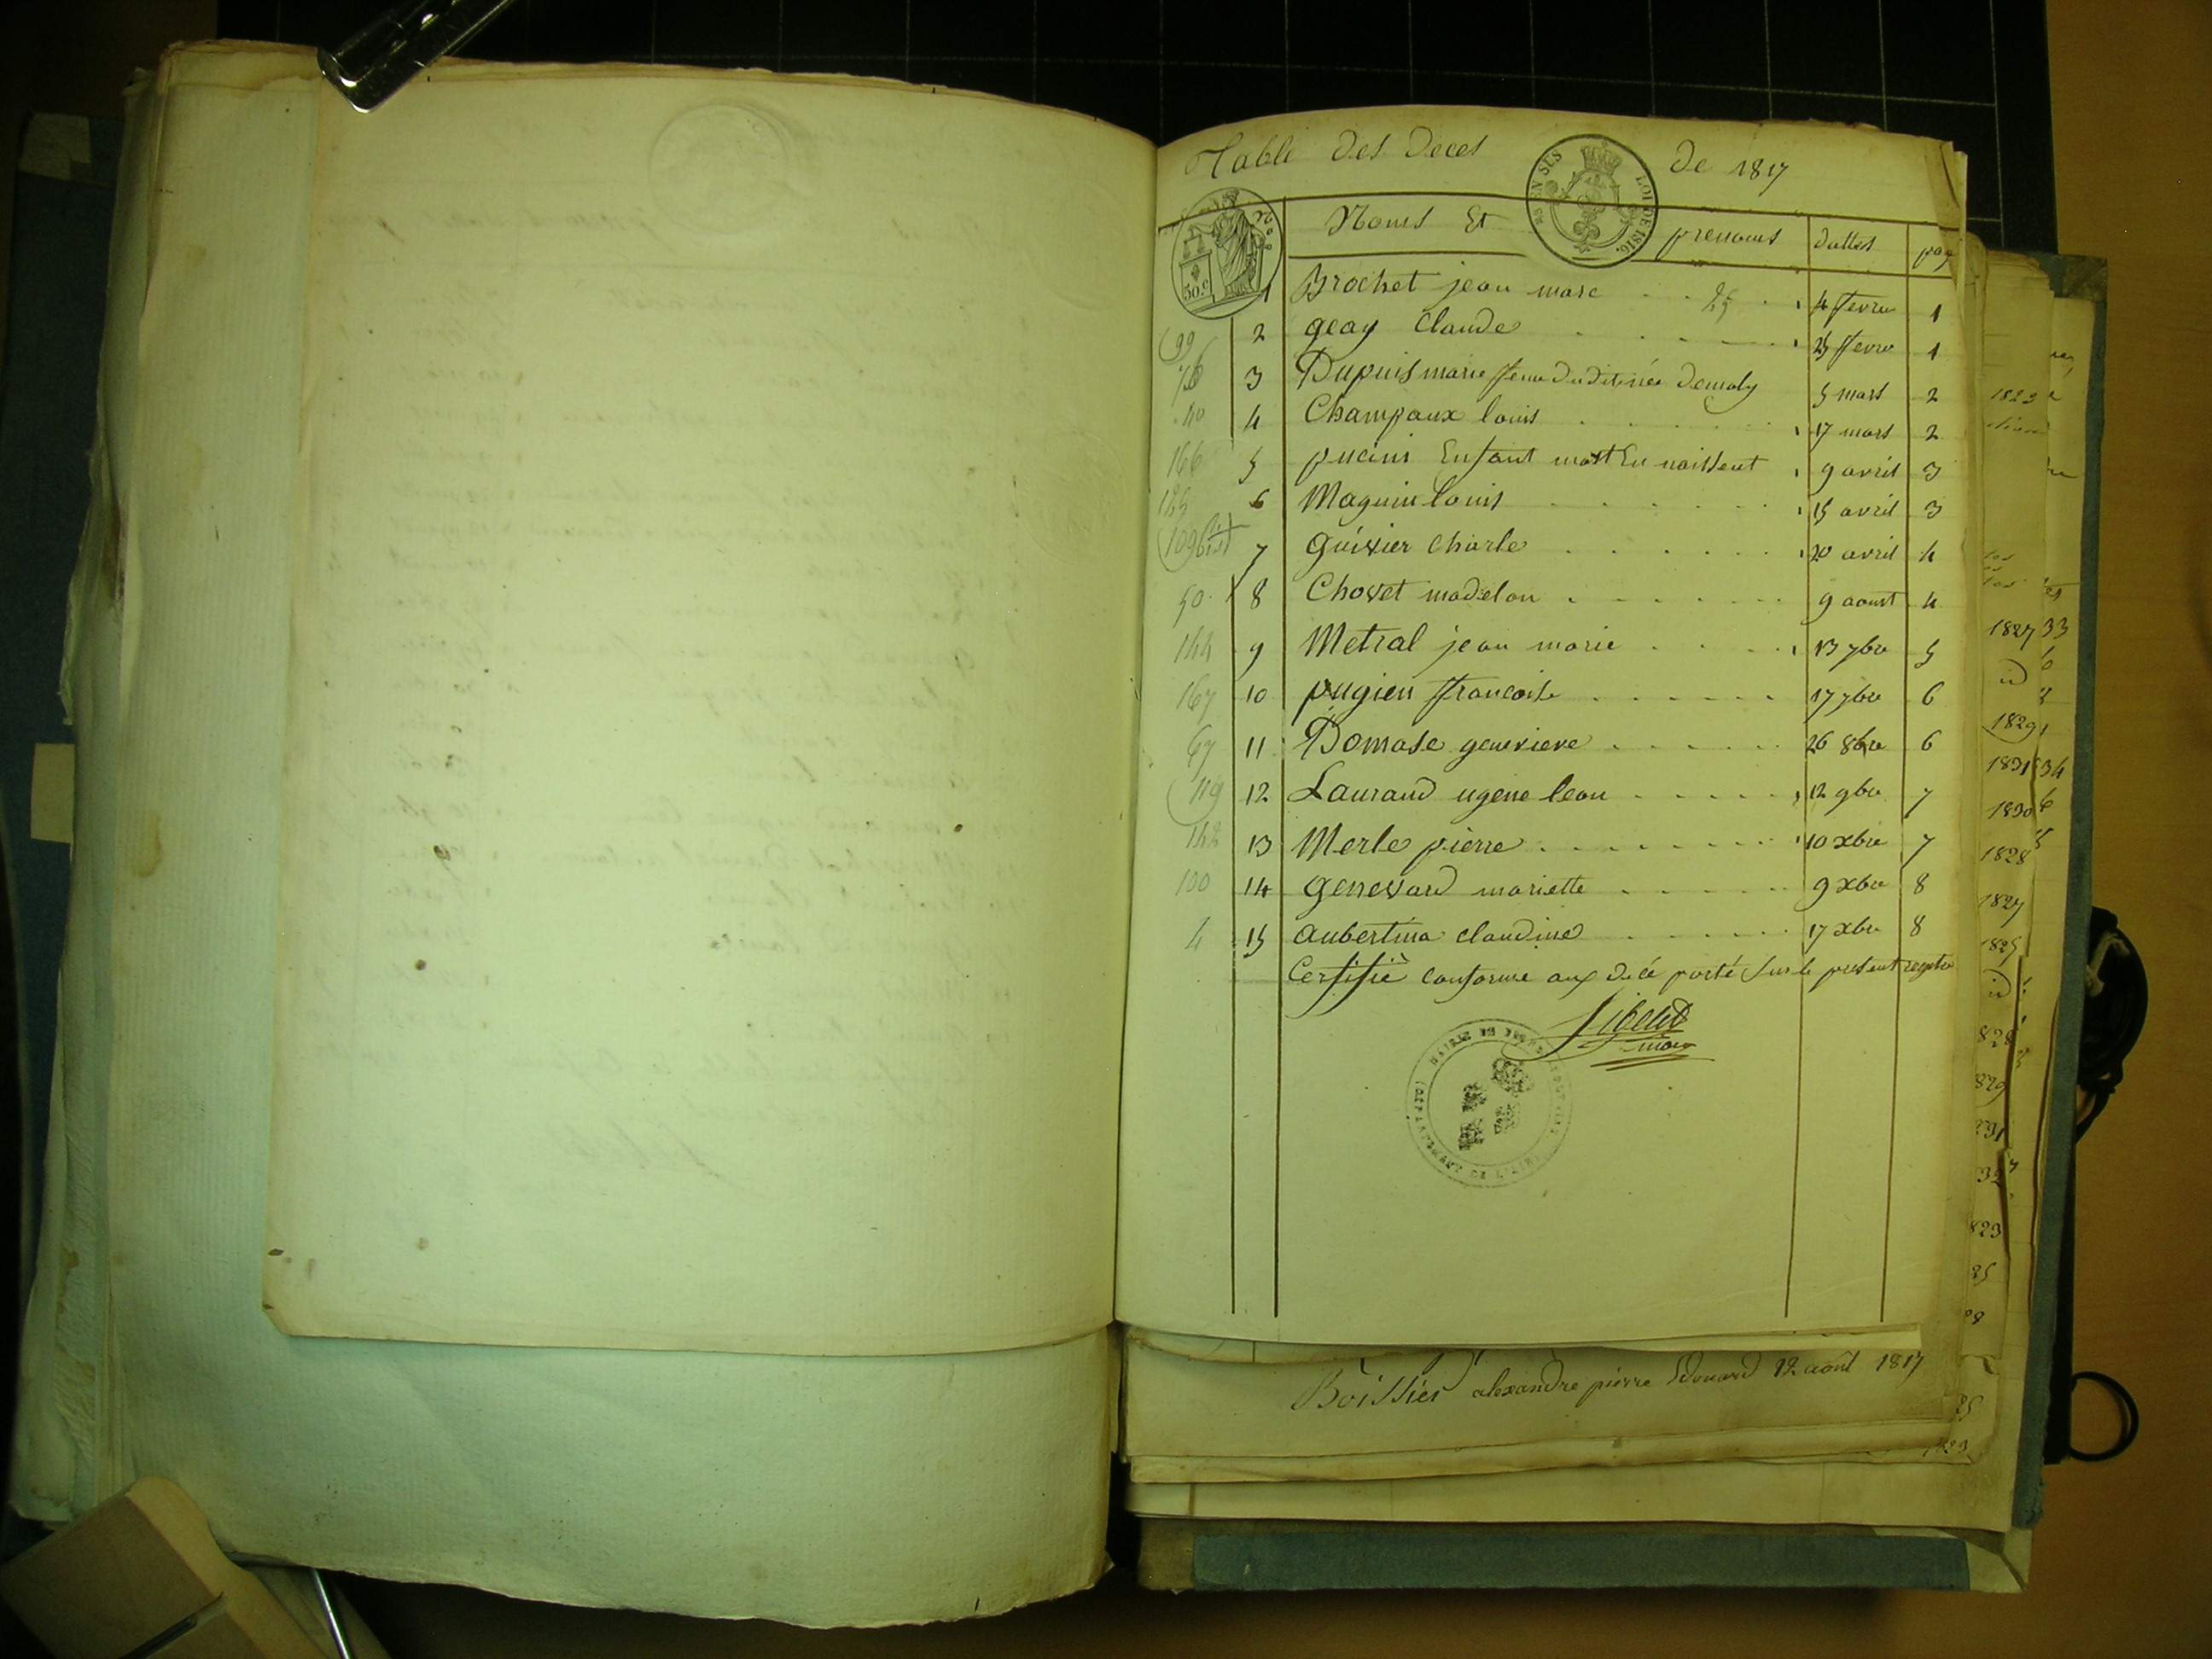 Table des deces de 1817
EN SUS LOI DE 1816.
50 c
Noms Et prenoms dattes pag
1 Brochet jean marc 25 4 fevre 1
99 2 geay Claude 25 fevre 1
76 3 Dupuis marie 5 mars 2
40 4 Champaux louis 17 mars 2
166 5 pucins Enfant mort En naissent 9 avril 3
125 6 Maguin louis 15 avril 3
109 bis 7 guivier charle 20 avril 4
50 8 Chovet madelon 9 aoust 4
144 9 Metral jean marie 13 7bre 5
167 10 pugien francoise 17 7bre 6
67 11 Domase genevieve 26 8bre 6
119 12 Laurand ugene leon 12 9bre 7
142 13 Merle pierre 10 xbre 7
100 14 genevard mariette 9 xbre 8
4 15 aubertina claudine 17 xbre 8
Certifié conforme aux decé porté sur le present registre
maire
MAIRIE DE
DEPARTEMENT DE L'AIN
Boissier alexandre pierre Edouard 12 août 1817
1823
1827 33
id
1829
1831 34
1830 6
1828
1827
1825
id
828
829
823
85